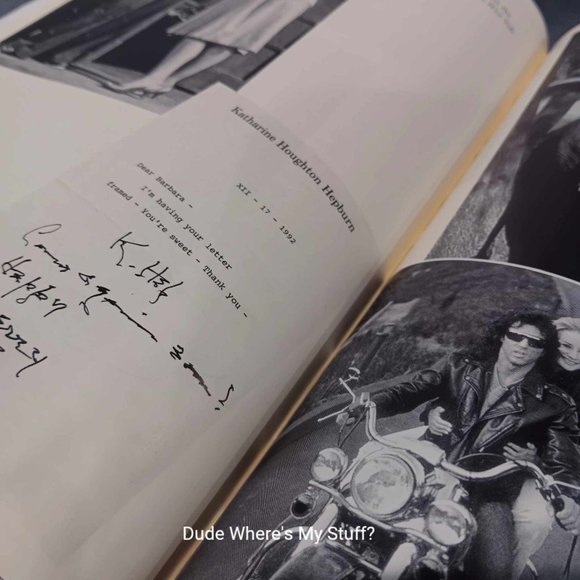 Katharine Houghton Hepburn
XII - 17 - 1992
Dear Barbara -
I'm having your letter
framed - You're sweet - Thank you -
K. Hep
Happy
Dude Where's My Stuff?